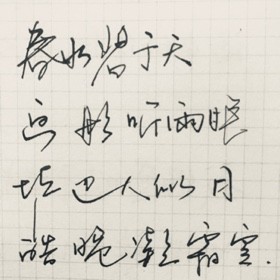 春水碧于天
画船听雨眠
垆边人似月
皓腕凝霜雪.